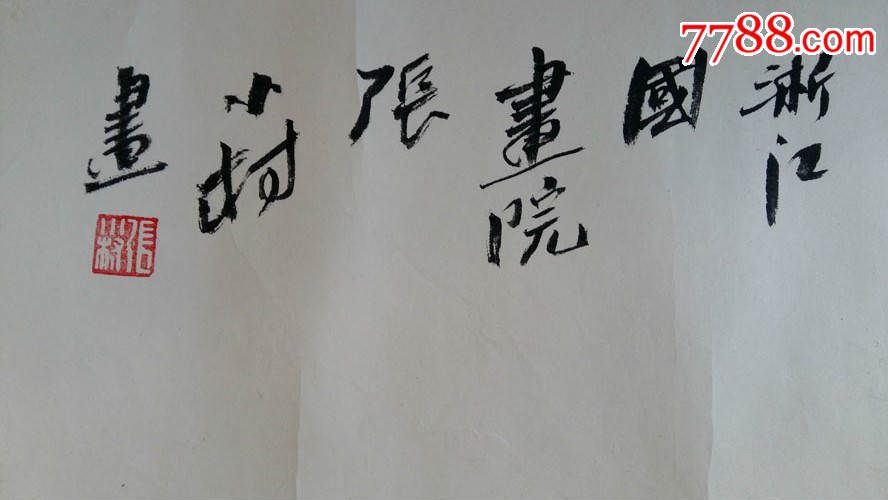 7788.com
浙江
國
畫院
張
小村
畫